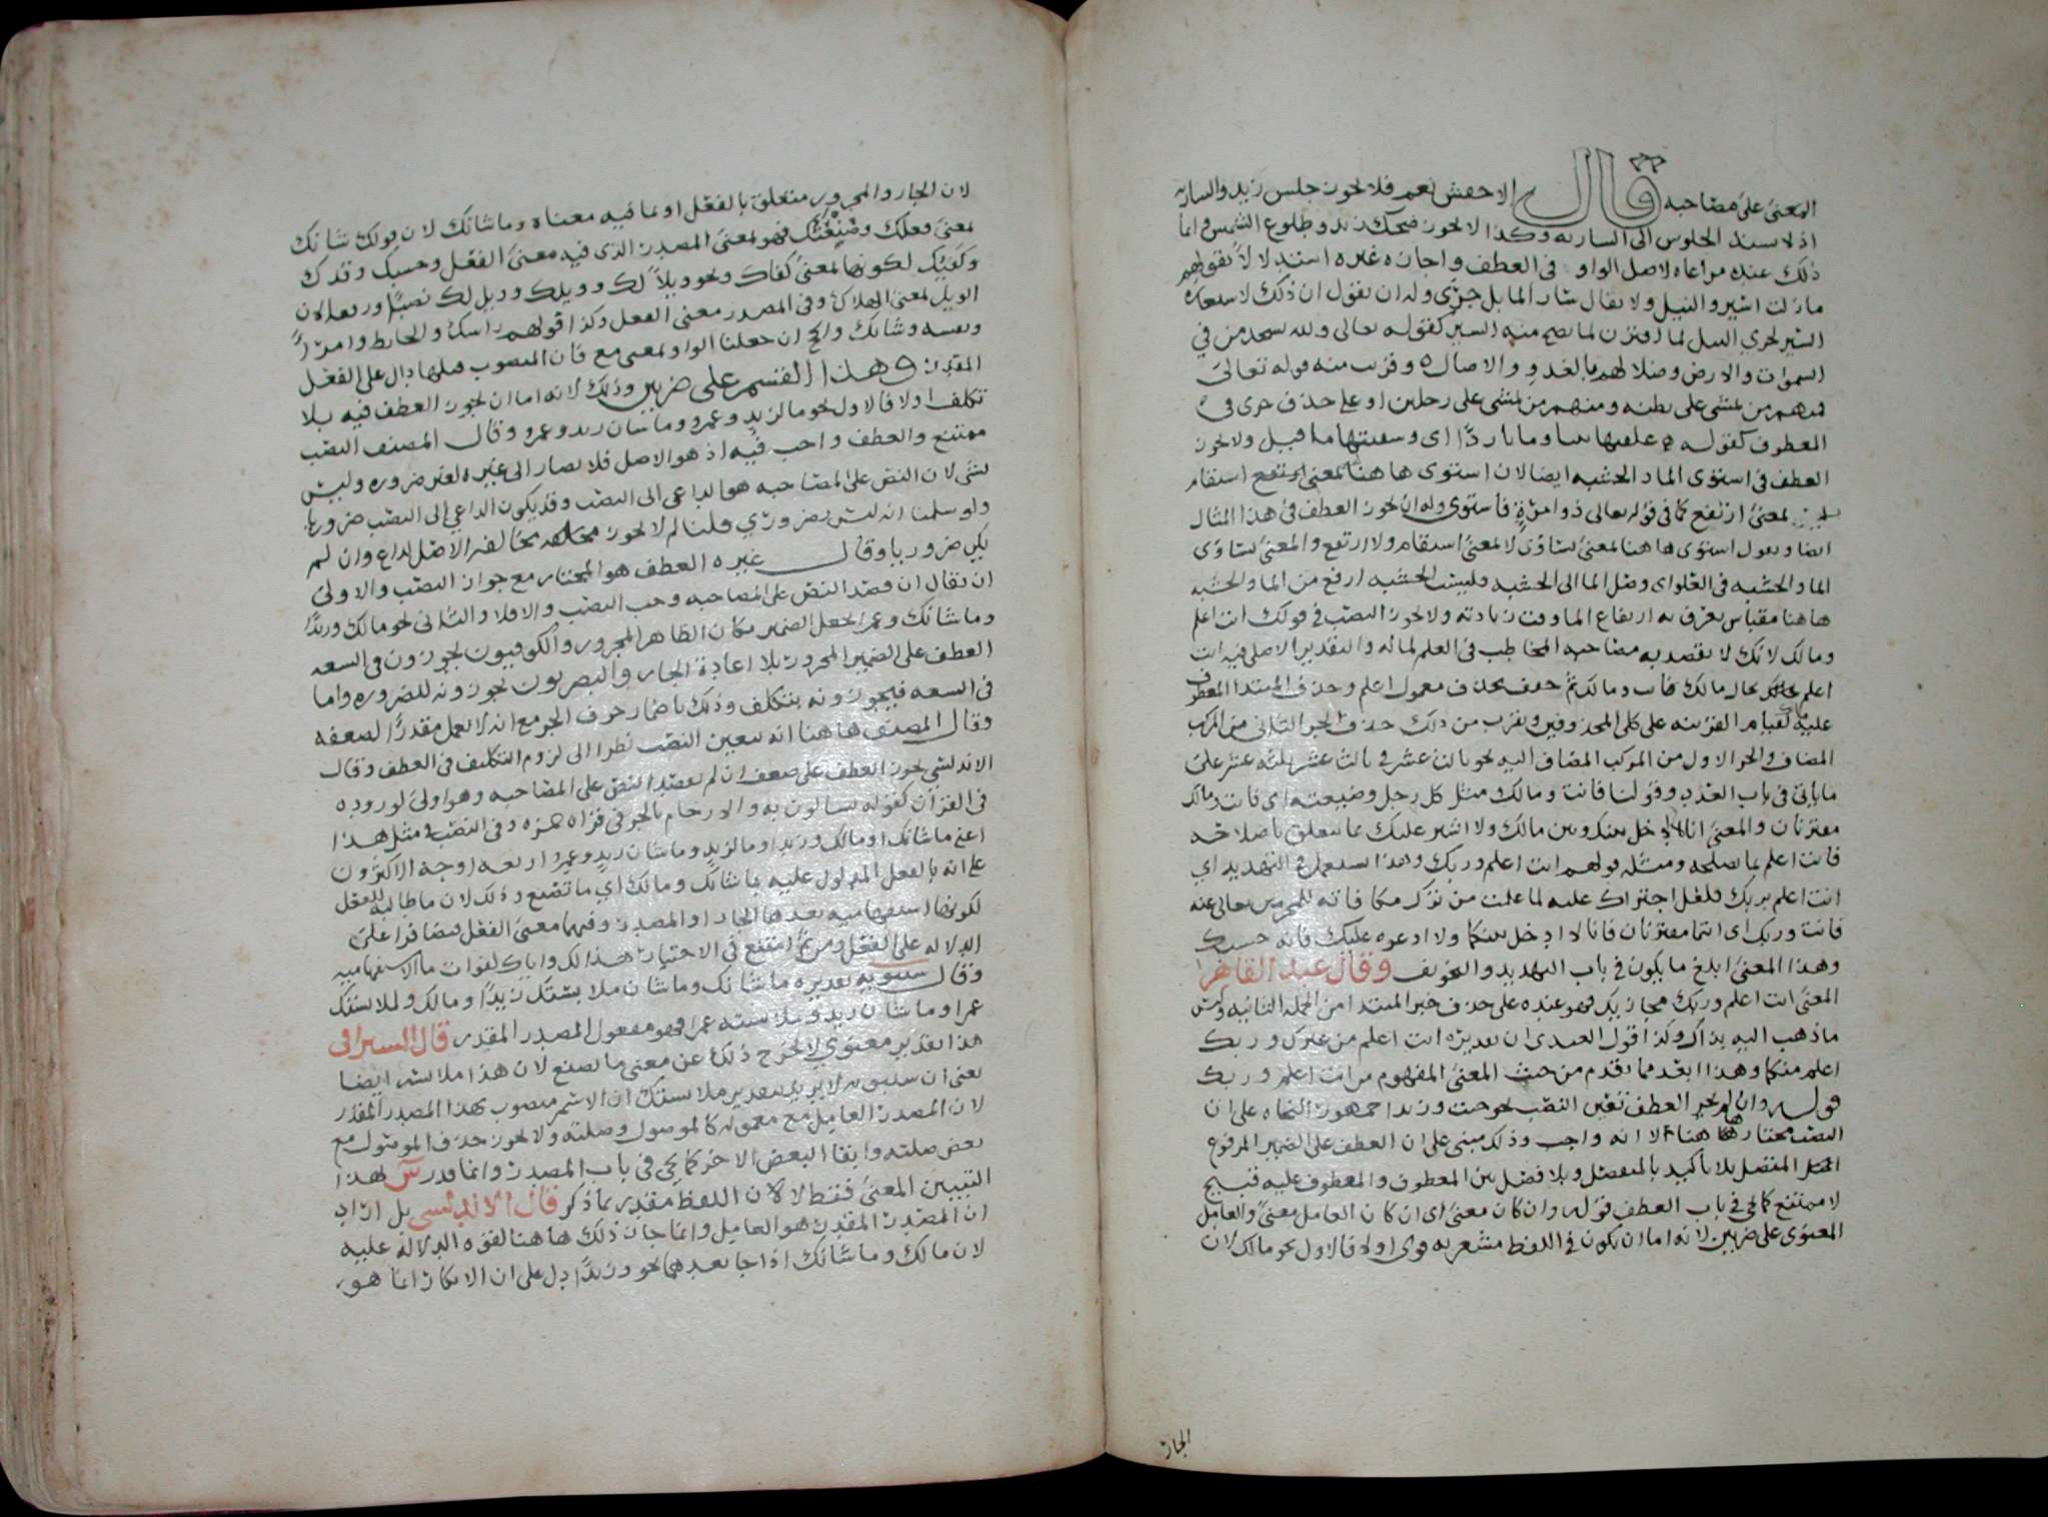 المعنى على مصاحبه قال الاخفش نعم فلا يجوز جلس زيد والساريه
اذ لا يسند الجلوس الى الساريه وكذا لا يجوز ضحك زيد وطلوع الشمس وانما
ذلك عنده مراعاه لاصل الواو في العطف واجازه غيره استدلالا بقولهم
مازلت اسير والنيل ولا يقال سار الما بل جرى وله ان يقول ان ذلك لاستعاره
السير لجري النيل لما اقترن لما يصح منه السير كقوله تعالى ولله يسجد من في
السموات والارض وضلالهم بالغدو والاصال وقرب منه قوله تعالى
فمنهم من يمشى على بطنه ومنهم من يمشى على رجلين او على حذف جرى في
المعطوف كقوله علفتها تبنا وما باردا اى وسقيتها ما قبل ولا يجوز
العطف في استوى الما والخشبه ايضا لان استوى هاهنا بمعنى استقام
بمعنى ارتفع كما في قوله تعالى ذو مرة فاستوى وله ان يجوز العطف في هذا المثال
ايضا ويقول استوى هاهنا بمعنى تساوى لا بمعنى استقام ولا ارتفع والمعنى تساوى
الما والخشبه في العلو اى وصل الما الى الخشبه فليست الخشبه ارفع من الما والخشبه
هاهنا مقياس يعرف به ارتفاع الما وقت زيادته ولا يجوز النصب في قولك انت اعلم
ومالك لانك لا تقصد به مصاحبه المخاطب في العلم لماله والتقدير الاصلى فيه انت
اعلم بحال مالك فانت ومالك ثم حذف معمول اعلم وحذف المبتدا المعطوف
عليه لقيام القرينه على كلى المحذوفين وقرب من ذلك حذف الجز الثاني من المركب
المضاف والجز الاول من المركب المضاف اليه نحو ثالث عشر في ثالث عشر ثلثه عشر على
ما ياتى في باب العدد وقولنا فانت ومالك مثل كل رجل وضيعته اى فانت ومالك
مقترنان والمعنى انا لا ادخل بينك وبين مالك ولا اشير عليك بما يتعلق باصلاحه
فانت اعلم بما يصلحه ومثله قولهم انت اعلم وربك وهذا يستعمل في التهديد اي
انت اعلم بربك فلعل اجتراك عليه لما علمت من ترك مكافاته للمجرمين تعالى عنه
فانت وربك اى انتما مقترنان فانا لا ادخل بينكما ولا ادعوه عليك فانه حسبك
وهذا المعنى ابلغ ما يكون في باب التهديد والتخويف وقال عبد القاهر
المعنى انت اعلم وربك مجازيك فهو عنده على حذف خبر المبتدا من الجمله الثانيه
ماذهب اليه بذاك وكذا قول العبدى ان تقديره انت اعلم من غيرك وربك
اعلم منكما وهذا ابعد مما تقدم من حيث المعنى المفهوم من انت اعلم وربك
قوله وان لم يجز العطف تعين النصب نحو جئت وزيدا جمهور النحاه على ان
النصب مختار هاهنا لا انه واجب وذلك مبنى على ان العطف على الضمير المرفوع
المتصل بلا تاكيد بالمنفصل وبلا فصل بين المعطوف والمعطوف عليه قبيح
لا ممتنع كما يجي في باب العطف قوله وان كان معنى اى ان كان العامل معنى والعامل
المعنوى على ضربين لانه اما ان يكون في اللفظ مشعر به قوى اولا فالاول نحو مالك لان
الجار
لان الجار والمجرور متعلق بالفعل او بما فيه معناه وما شانك لان قولك شانك
بمعنى فعلك وصنعتك فهو بمعنى المصدر الذى فيه معنى الفعل وحسبك وقدك
وكفيك لكونها بمعنى كفاك ونحو ويلا لك وويلك وويل لك نصبا ورفعا لان
الويل بمعنى الهلاك وفي المصدر معنى الفعل وكذا قولهم راسك والحايط وامرا
ونفسه وشانك والحج ان جعلنا الواو بمعنى مع فان المنصوب قبلها دال على الفعل
المقدر وهذا القسم على ضربين وذلك لانه اما ان يجوز العطف فيه بلا
تكلف اولا فالاول نحو ما لزيد وعمرو وما شان زيد وعمرو وقال المصنف النصب
ممتنع والعطف واجب فيه اذ هو الاصل فلا يصار الى غيره لغير ضروره وليس
بشى لان النص على المصاحبه هو الداعى الى النصب وقد يكون الداعي الى النصب ضروريا
ولو سلمنا انه ليس بضروري قلنا لم لا يجوز مخالفه الاصل لداع وان لم
يكن ضروريا وقال غيره العطف هو المختار مع جواز النصب والاولى
ان يقال ان قصد النص على المصاحبه وجب النصب والا فلا والثانى نحو مالك وزيدا
وما شانك وعمرا بجعل الضمير مكان الظاهر المجرور والكوفيون يجوزون في السعه
العطف على الضمير المجرور بلا اعادة الجار والبصريون يجوزونه للضروره واما
في السعه فيجوزونه بتكلف وذلك باضمار حرف الجر مع انه لا يعمل مقدرا لضعفه
وقال المصنف هاهنا انه يتعين النصب نظرا الى لزوم التكليف في العطف وقال
الاندلسي يجوز العطف على ضعف ان لم يقصد النص على المصاحبه وهو اولى لوروده
في القرآن كقوله تسالون به والارحام بالجر في قراه حمزه وفي النصب في مثل هذا
اعنى ما شانك او مالك وزيدا وما لزيد وما شان زيد وعمرا اربعه اوجه الاكثرون
على انه بالفعل المدلول عليه بما شانك ومالك اي ما تصنع وذلك لان ما طالبه للفعل
لكونها استفهاميه بعدها الجار او المصدر وفيها معنى الفعل فتضافرا على
الدلاله على الفعل ومن ثم امتنع في الاختيار هذا لك واياك لفوات ما الاستفهاميه
وقال سيبويه تقديره ما شانك وما شان ملابستك زيدا ومالك وملابستك
عمرا وما شان زيد وملابسته عمرا فهو مفعول المصدر المقدر قال السيرافى
هذا تقدير معنوي لا يخرج ذلك عن معنى ما تصنع لان هذا ملابسه ايضا
يعنى ان سيبويه لا يريد بتقدير ملابستك ان الاسم منصوب بهذا المصدر المقدر
لان المصدر العامل مع معموله كالموصول وصلته ولا يجوز حذف الموصول مع
بعض صلته وابقا البعض الاخر كما يجى في باب المصدر وانما قدر س لهذا
التبيين المعنى فقط لا لان اللفظ مقدر بما ذكر قال الاندلسى بل اراد
ان المصدر المقدر هو العامل وانما جاز ذلك هاهنا لقوه الدلاله عليه
لان مالك وما شانك اذا جا بعدهما نحو وزيدا دل على ان الانكار انما هو